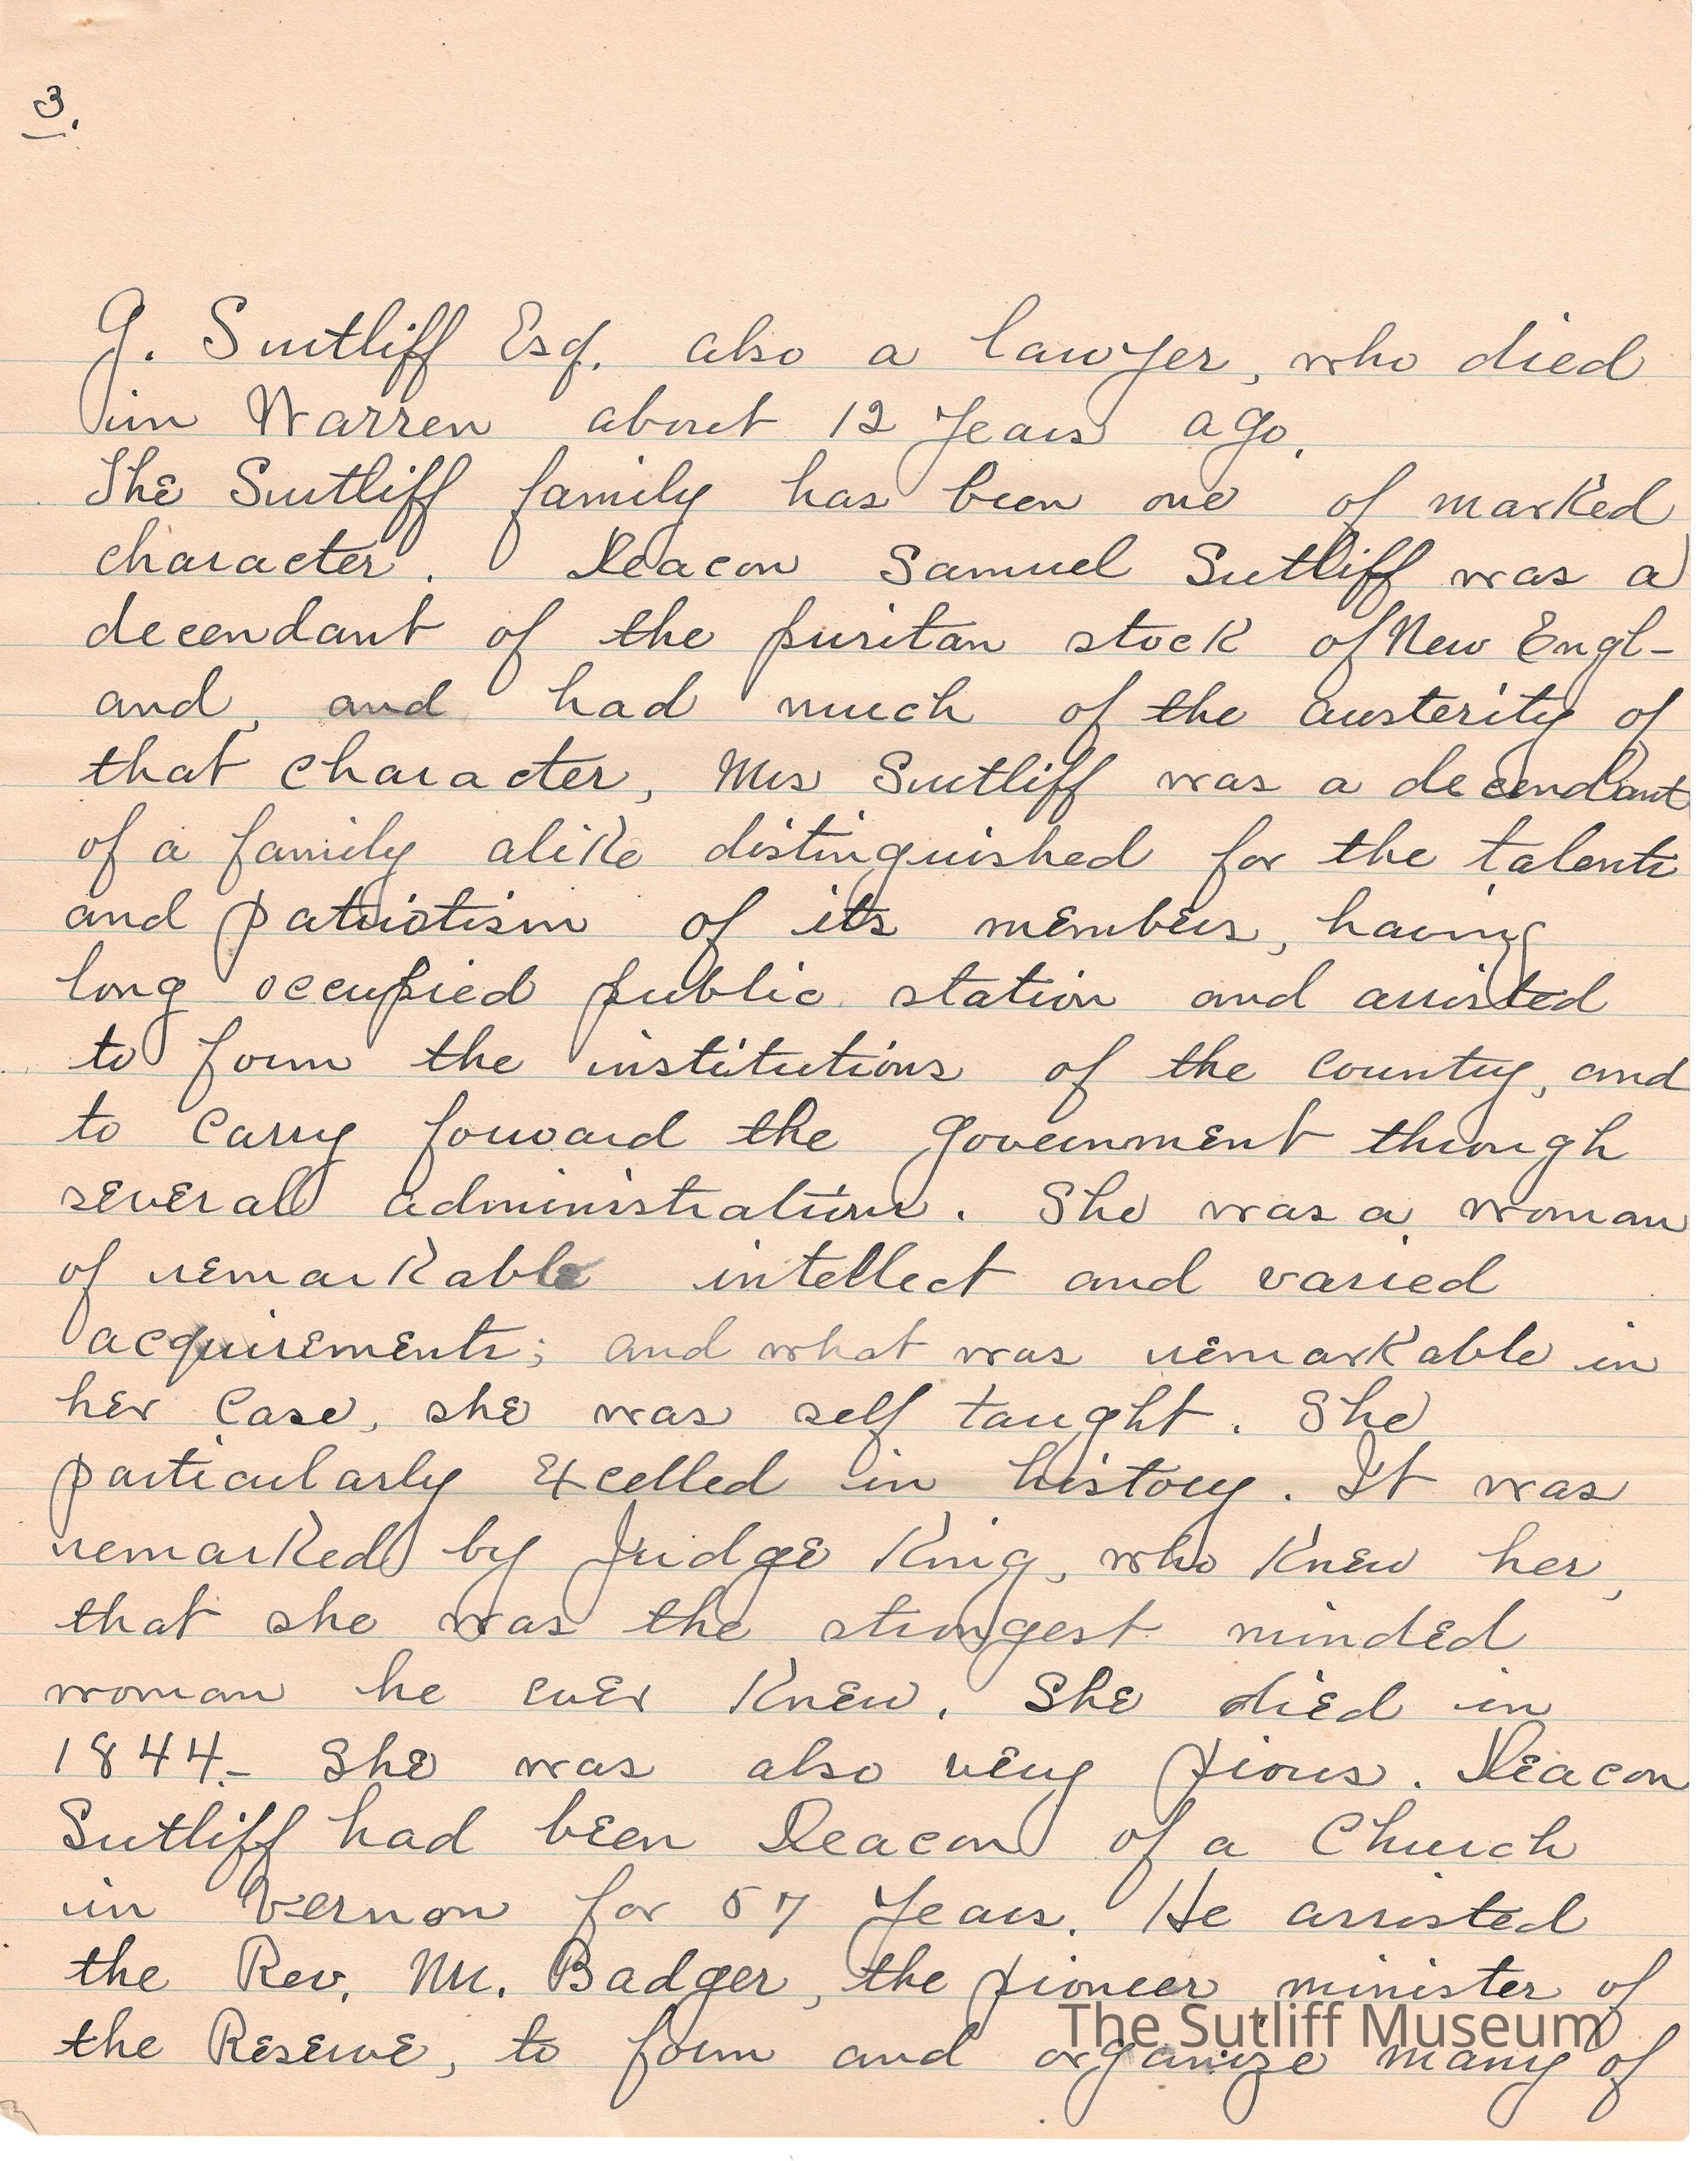 3.
G. Sutliff Esq. also a lawyer, who died
in Warren about 12 years ago.
The Sutliff family has been one of marked
character. Deacon Samuel Sutliff was a
decendant of the puritan stock of New Engl-
and, and had much of the austerity of
that character, Mrs Sutliff was a decendant
of a family alike distinguished for the talents
and patriotism of its members, having
long occupied public station and assisted
to form the institutions of the country, and
to carry forward the government through
several administrations. She was a woman
of remarkable intellect and varied
acquirements; and what was remarkable in
her case, she was self taught. She
particularly excelled in history. It was
remarked by Judge King, who knew her,
that she was the strongest minded
woman he ever knew. She died in
1844.- She was also very pious. Deacon
Sutliff had been Deacon of a Church
in Vernon for 57 years. He assisted
the Rev. Mr. Badger, the pioneer minister of
the Reserve, to form and organize many of
The Sutliff Museum